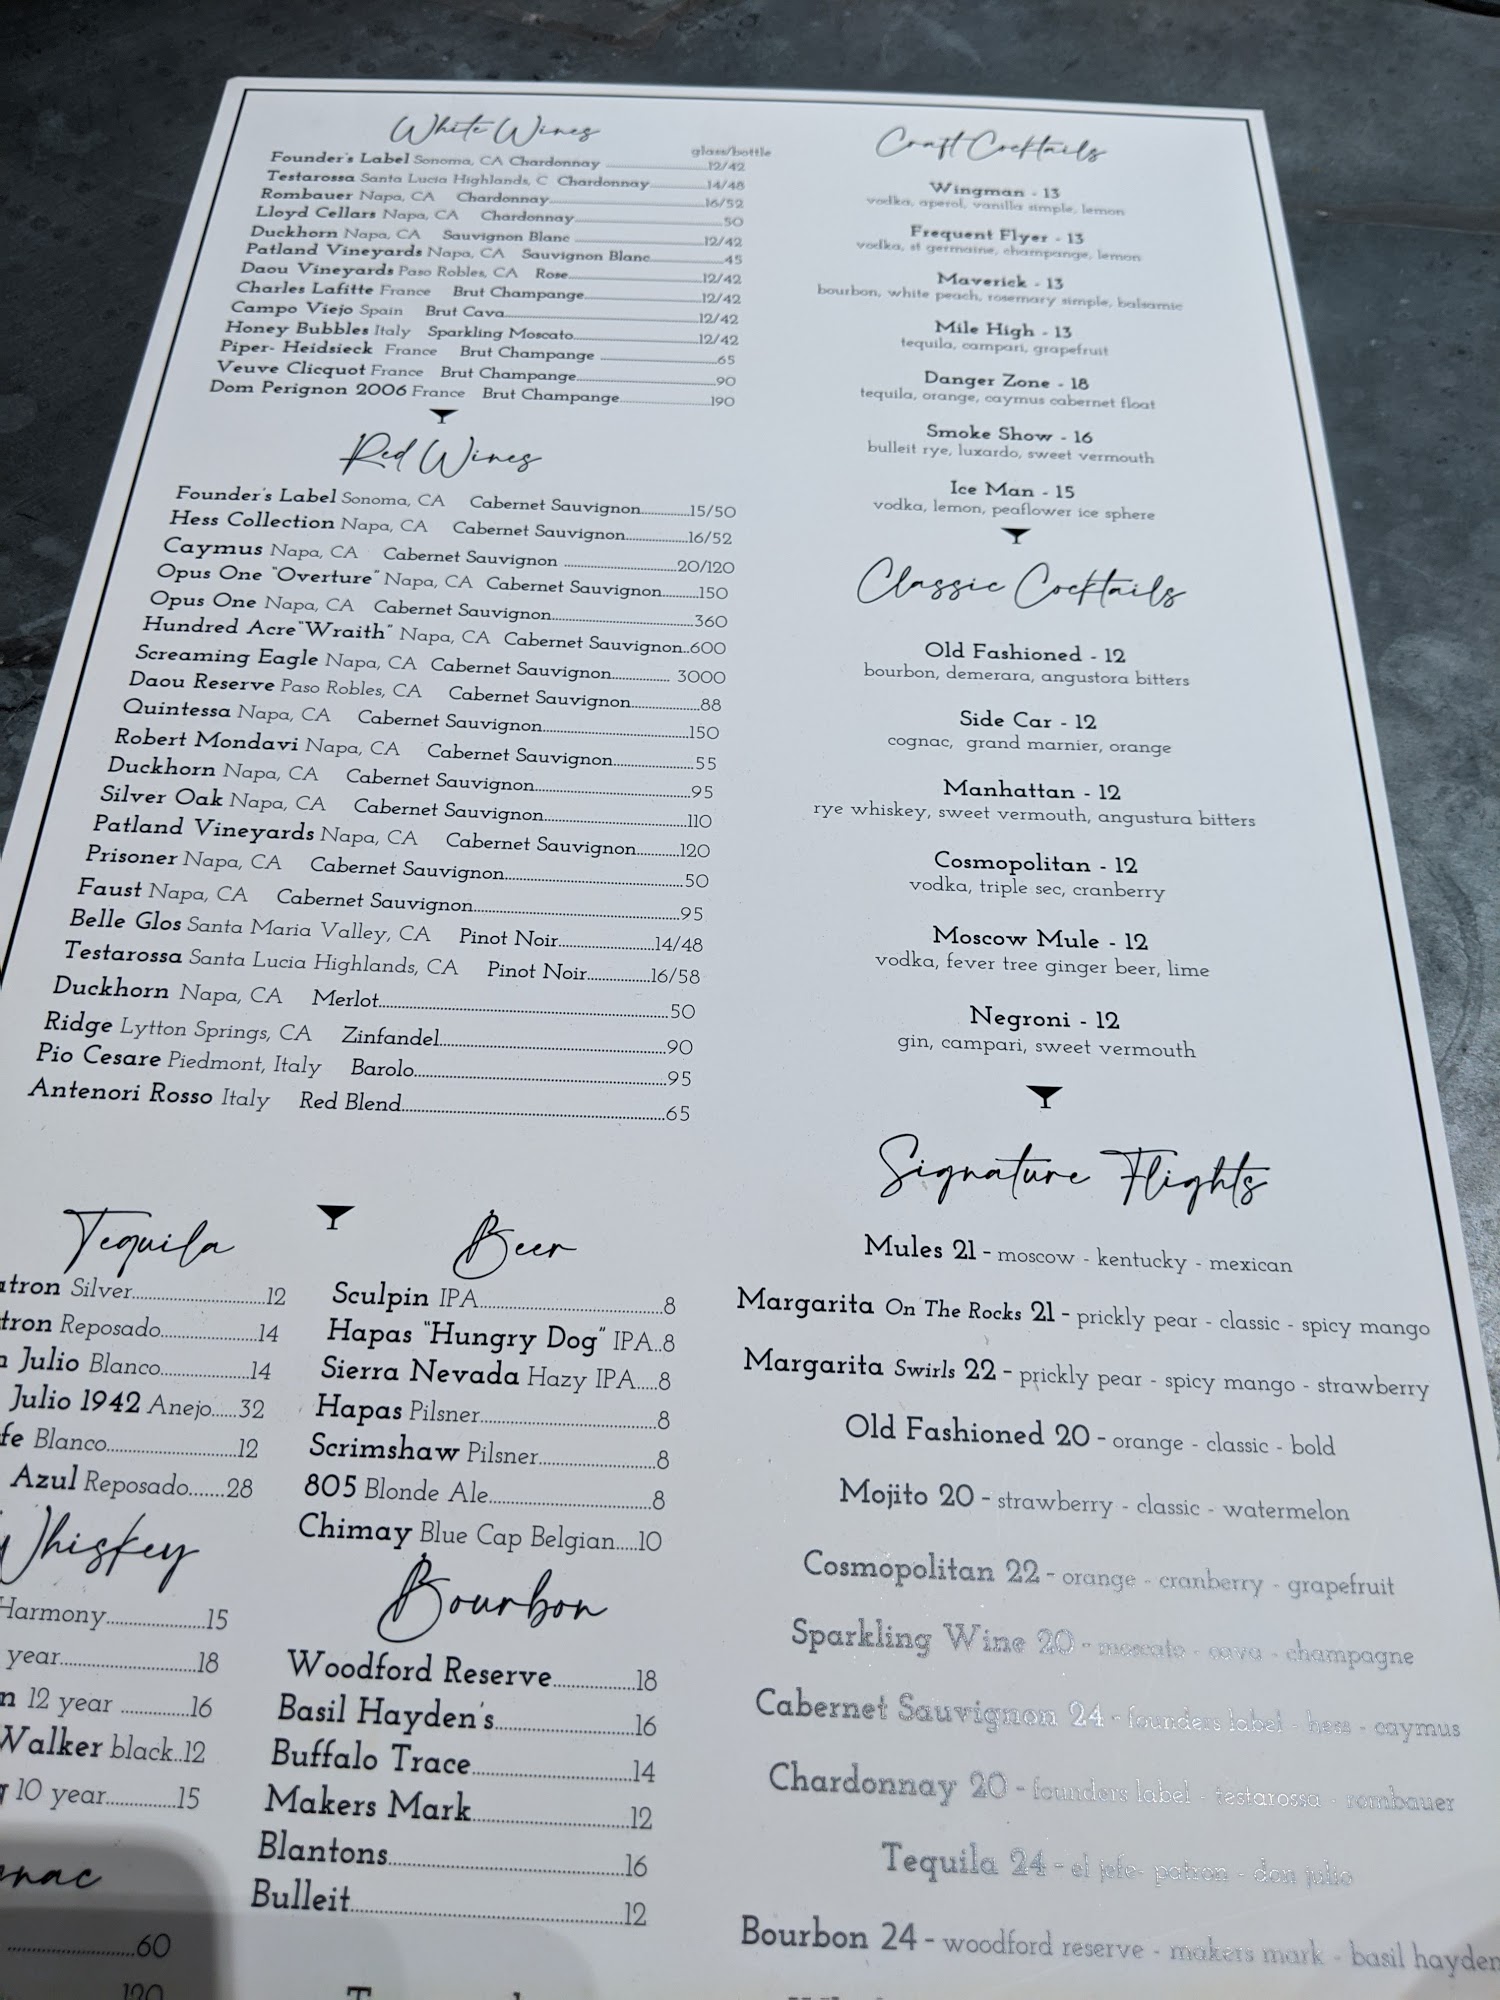 White Wines
glass/bottle
Founder's Label Sonoma, CA Chardonnay 12/42
Testarossa Santa Lucia Highlands, C Chardonnay 14/48
Rombauer Napa, CA Chardonnay 16/52
Lloyd Cellars Napa, CA Chardonnay 50
Duckhorn Napa, CA Sauvignon Blanc 12/42
Patland Vineyards Napa, CA Sauvignon Blanc 45
Daou Vineyards Paso Robles, CA Rose 12/42
Charles Lafitte France Brut Champange 12/42
Campo Viejo Spain Brut Cava 12/42
Honey Bubbles Italy Sparkling Moscato 12/42
Piper- Heidsieck France Brut Champange 65
Veuve Clicquot France Brut Champange 90
Dom Perignon 2006 France Brut Champange 190
Red Wines
Founder's Label Sonoma, CA Cabernet Sauvignon 15/50
Hess Collection Napa, CA Cabernet Sauvignon 16/52
Caymus Napa, CA Cabernet Sauvignon 20/120
Opus One "Overture" Napa, CA Cabernet Sauvignon 150
Opus One Napa, CA Cabernet Sauvignon 360
Hundred Acre"Wraith" Napa, CA Cabernet Sauvignon..600
Screaming Eagle Napa, CA Cabernet Sauvignon 3000
Daou Reserve Paso Robles, CA Cabernet Sauvignon 88
Quintessa Napa, CA Cabernet Sauvignon 150
Robert Mondavi Napa, CA Cabernet Sauvignon 55
Duckhorn Napa, CA Cabernet Sauvignon 95
Silver Oak Napa, CA Cabernet Sauvignon 110
Patland Vineyards Napa, CA Cabernet Sauvignon 120
Prisoner Napa, CA Cabernet Sauvignon 50
Faust Napa, CA Cabernet Sauvignon 95
Belle Glos Santa Maria Valley, CA Pinot Noir 14/48
Testarossa Santa Lucia Highlands, CA Pinot Noir 16/58
Duckhorn Napa, CA Merlot 50
Ridge Lytton Springs, CA Zinfandel 90
Pio Cesare Piedmont, Italy Barolo 95
Antenori Rosso Italy Red Blend 65
Tequila
atron Silver 12
tron Reposado 14
n Julio Blanco 14
Julio 1942 Anejo 32
fe Blanco 12
Azul Reposado 28
Whiskey
Harmony 15
year 18
n 12 year 16
Walker black..12
10 year 15
gnac
60
120
Beer
Sculpin IPA 8
Hapas "Hungry Dog" IPA..8
Sierra Nevada Hazy IPA 8
Hapas Pilsner 8
Scrimshaw Pilsner 8
805 Blonde Ale 8
Chimay Blue Cap Belgian 10
Bourbon
Woodford Reserve 18
Basil Hayden's 16
Buffalo Trace 14
Makers Mark 12
Blantons 16
Bulleit 12
Craft Cocktails
Wingman - 13
vodka, aperol, vanilla simple, lemon
Frequent Flyer - 13
vodka, st germaine, champange, lemon
Maverick - 13
bourbon, white peach, rosemary simple, balsamic
Mile High - 13
tequila, campari, grapefruit
Danger Zone - 18
tequila, orange, caymus cabernet float
Smoke Show - 16
bulleit rye, luxardo, sweet vermouth
Ice Man - 15
vodka, lemon, peaflower ice sphere
Classic Cocktails
Old Fashioned - 12
bourbon, demerara, angustora bitters
Side Car - 12
cognac, grand marnier, orange
Manhattan - 12
rye whiskey, sweet vermouth, angustura bitters
Cosmopolitan - 12
vodka, triple sec, cranberry
Moscow Mule - 12
vodka, fever tree ginger beer, lime
Negroni - 12
gin, campari, sweet vermouth
Signature Flights
Mules 21 - moscow - kentucky - mexican
Margarita On The Rocks 21 - prickly pear - classic - spicy mango
Margarita Swirls 22 - prickly pear - spicy mango - strawberry
Old Fashioned 20 - orange - classic - bold
Mojito 20 - strawberry - classic - watermelon
Cosmopolitan 22 - orange - cranberry - grapefruit
Sparkling Wine 20 - moscato - cava - champagne
Cabernet Sauvignon 24 - founders label - hess - caymus
Chardonnay 20 - founders label - testarossa - rombauer
Tequila 24 - el jefe- patron - don julio
Bourbon 24 - woodford reserve - makers mark - basil hayden